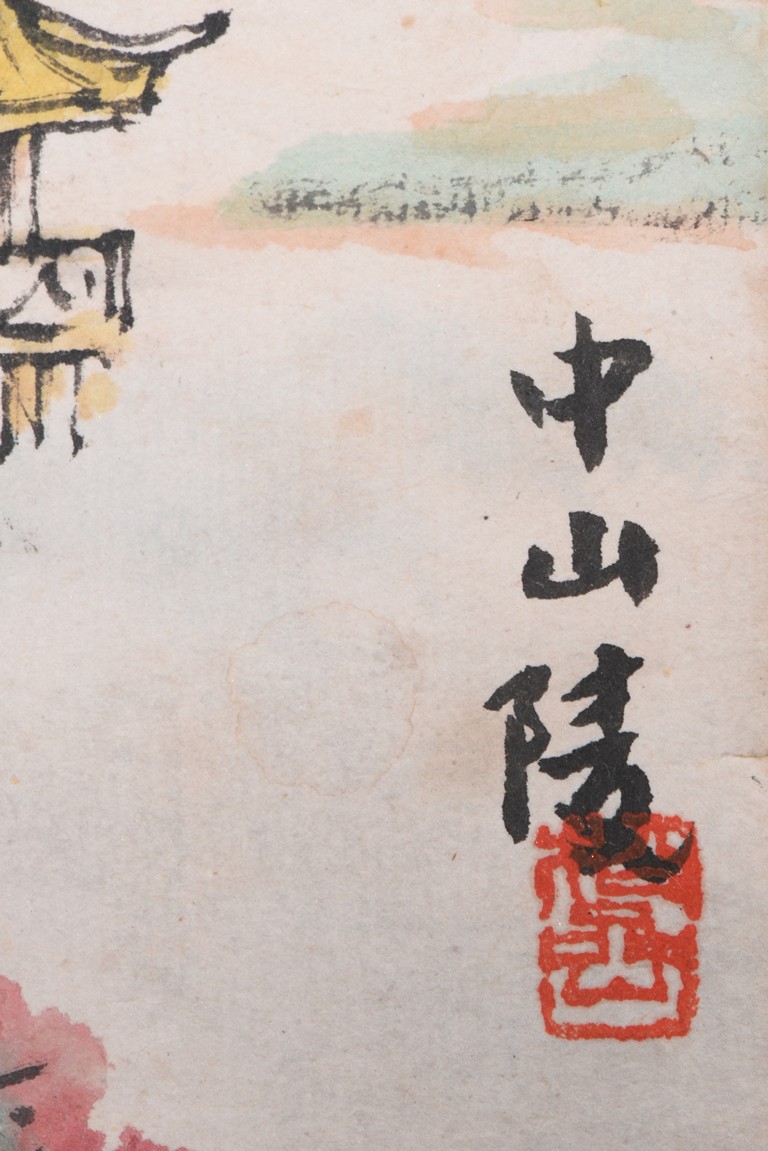 中山陵